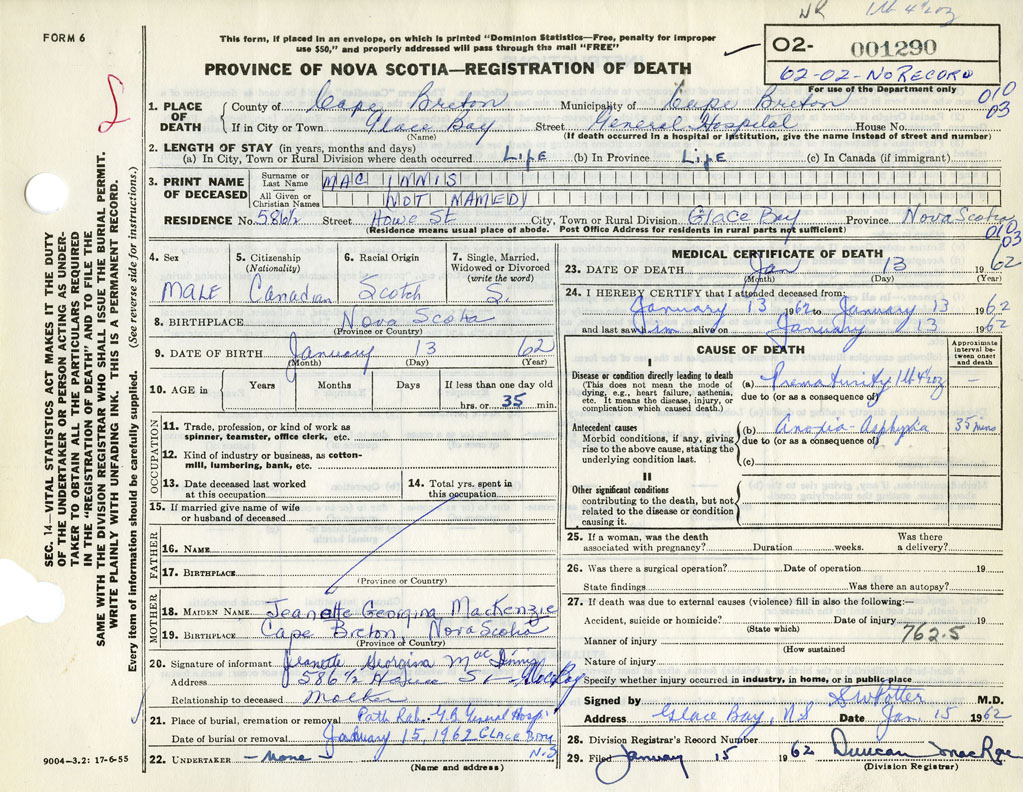 NR 1 lb 4 1/2 oz
FORM 6
This form, if placed in an envelope, on which is printed "Dominion Statistics—Free, penalty for improper
use $50," and properly addressed will pass through the mail "FREE"
02- 001290
62-02-NO RECORD
For use of the Department only
PROVINCE OF NOVA SCOTIA—REGISTRATION OF DEATH
010
03
1. PLACE OF DEATH
County of Cape Breton Municipality of Cape Breton
If in City or Town Glace Bay Street General Hospital House No.
(Name) (If death occurred in a hospital or institution, give the name instead of street and number)
2. LENGTH OF STAY (in years, months and days)
(a) In City, Town or Rural Division where death occurred LIFE (b) In Province LIFE (c) In Canada (if immigrant)
3. PRINT NAME OF DECEASED
Surname or Last Name MAC INNIS
All Given or Christian Names (NOT NAMED)
RESIDENCE No. 586½ Street Howe St City, Town or Rural Division Glace Bay Province Nova Scotia
(Residence means usual place of abode. Post Office Address for residents in rural parts not sufficient)
010
03
4. Sex
MALE
5. Citizenship
(Nationality)
Canadian
6. Racial Origin
Scotch
7. Single, Married,
Widowed or Divorced
(write the word)
S.
8. BIRTHPLACE Nova Scotia
(Province or Country)
9. DATE OF BIRTH January 13 62
(Month) (Day) (Year)
10. AGE in
Years Months Days If less than one day old
hrs. or 35 min.
OCCUPATION
11. Trade, profession, or kind of work as
spinner, teamster, office clerk, etc.
12. Kind of industry or business, as cotton-
mill, lumbering, bank, etc.
13. Date deceased last worked
at this occupation
14. Total yrs. spent in
this occupation
15. If married give name of wife
or husband of deceased
FATHER
16. NAME
17. BIRTHPLACE
(Province or Country)
MOTHER
18. MAIDEN NAME Jeanette Georgina MacKenzie
19. BIRTHPLACE Cape Breton, Nova Scotia
(Province or Country)
20. Signature of informant Jeanette Georgina MacInnis
Address 586½ Howe St Glace Bay
Relationship to deceased Mother
21. Place of burial, cremation or removal Path Lab. G.B. General Hospi
Date of burial or removal January 15, 1962 GLACE BAY
N.S
22. UNDERTAKER -None-
(Name and address)
MEDICAL CERTIFICATE OF DEATH
23. DATE OF DEATH Jan 13 1962
(Month) (Day) (Year)
24. I HEREBY CERTIFY that I attended deceased from:
January 13 1962 to January 13 1962
and last saw him alive on January 13 1962
CAUSE OF DEATH
Approximate
interval be-
tween onset
and death
I
Disease or condition directly leading to death
(This does not mean the mode of
dying, e.g., heart failure, asthenia,
etc. It means the disease, injury, or
complication which caused death.)
(a) Prematurity 1 lb 4½ oz —
due to (or as a consequence of)
Antecedent causes
Morbid conditions, if any, giving
rise to the above cause, stating the
underlying condition last.
(b) Anoxia-Asphyxia 35 mins
due to (or as a consequence of)
(c)
II
Other significant conditions
contributing to the death, but not
related to the disease or condition
causing it.
25. If a woman, was the death Was there
associated with pregnancy? Duration weeks. a delivery?
26. Was there a surgical operation? Date of operation 19
State findings Was there an autopsy?
27. If death was due to external causes (violence) fill in also the following:—
Accident, suicide or homicide? Date of injury 19
(State which) 762.5
Manner of injury
(How sustained
Nature of injury
Specify whether injury occurred in industry, in home, or in public place
Signed by S W Potter M.D.
Address Glace Bay, N.S Date Jan. 15 1962
28. Division Registrar's Record Number
29. Filed January 15 1962 Duncan MacRae
(Division Registrar)
SEC. 14—VITAL STATISTICS ACT MAKES IT THE DUTY
OF THE UNDERTAKER OR PERSON ACTING AS UNDER-
TAKER TO OBTAIN ALL THE PARTICULARS REQUIRED
IN THE "REGISTRATION OF DEATH" AND TO FILE THE
SAME WITH THE DIVISION REGISTRAR WHO SHALL ISSUE THE BURIAL PERMIT.
WRITE PLAINLY WITH UNFADING INK. THIS IS A PERMANENT RECORD.
Every item of information should be carefully supplied. (See reverse side for instructions.)
9004—3.2: 17-6-55